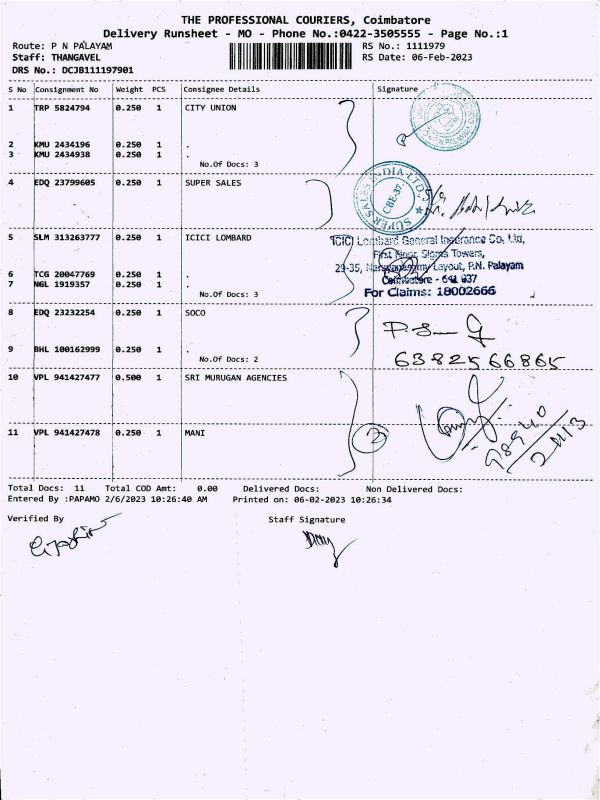 THE PROFESSIONAL COURIERS, Coimbatore
Delivery Runsheet - MO - Phone No.:0422-3505555 - Page No.:1
Route: P N PALAYAM
RS No.: 1111979
Staff: THANGAVEL
RS Date: 06-Feb-2023
DRS No.: DCJB111197901
S No Consignment No Weight PCS Consignee Details Signature
1 TRP 5824794 0.250 1 CITY UNION
2 KMU 2434196 0.250 1 .
3 KMU 2434938 0.250 1 .
No.Of Docs: 3
4 EDQ 23799605 0.250 1 SUPER SALES
SUPER SALES INDIA LTD.
CBE-37.
5 SLM 313263777 0.250 1 ICICI LOMBARD
ICICI Lombard General Insurance Co. Ltd,
First Floor, Sigma Towers,
6 TCG 20047769 0.250 1 .
29-35, Layout, P.N. Palayam
7 NGL 1919357 0.250 1 .
Coimbatore - 641 037
No.Of Docs: 3
For Claims: 18002666
8 EDQ 23232254 0.250 1 SOCO
9 BHL 100162999 0.250 1 .
No.Of Docs: 2
6382566865
10 VPL 941427477 0.500 1 SRI MURUGAN AGENCIES
11 VPL 941427478 0.250 1 MANI
2
98940
2113
Total Docs: 11 Total COD Amt: 0.00 Delivered Docs: Non Delivered Docs:
Entered By :PAPAMO 2/6/2023 10:26:40 AM Printed on: 06-02-2023 10:26:34
Verified By Staff Signature